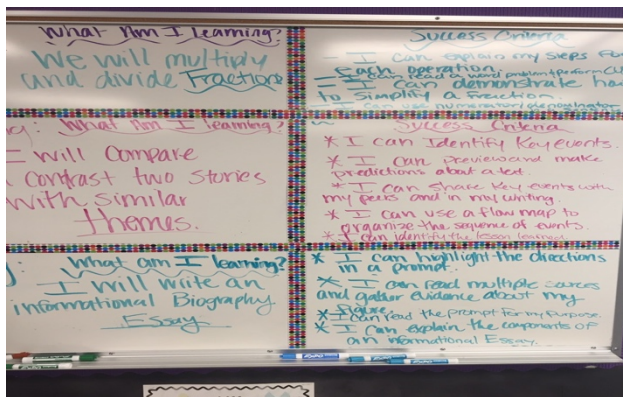 What Am I learning?
We will multiply
and divide Fractions
Success Criteria
- I can explain my steps for
each operation.
- I can read a word problem perform
= I can demonstrate how
to simplify a fraction
- I can use numerator/denominator
What Am I learning?
I will Compare
contrast two stories
with similar
themes.
Success Criteria
* I can Identify Key events.
* I can preview and make
predictions about a text.
* I can share key events with
my peers and in my writing.
* I can use a flow map to
organize the sequence of events.
* I can identify the lesson learned
What am I learning?
I will write an
informational Biography
Essay
* I can highlight the directions
in a prompt.
* I can read multiple sources
and gather evidence about my
figure.
* I can read the prompt for my purpose.
* I can explain the components of
an informational Essay.
EXPO